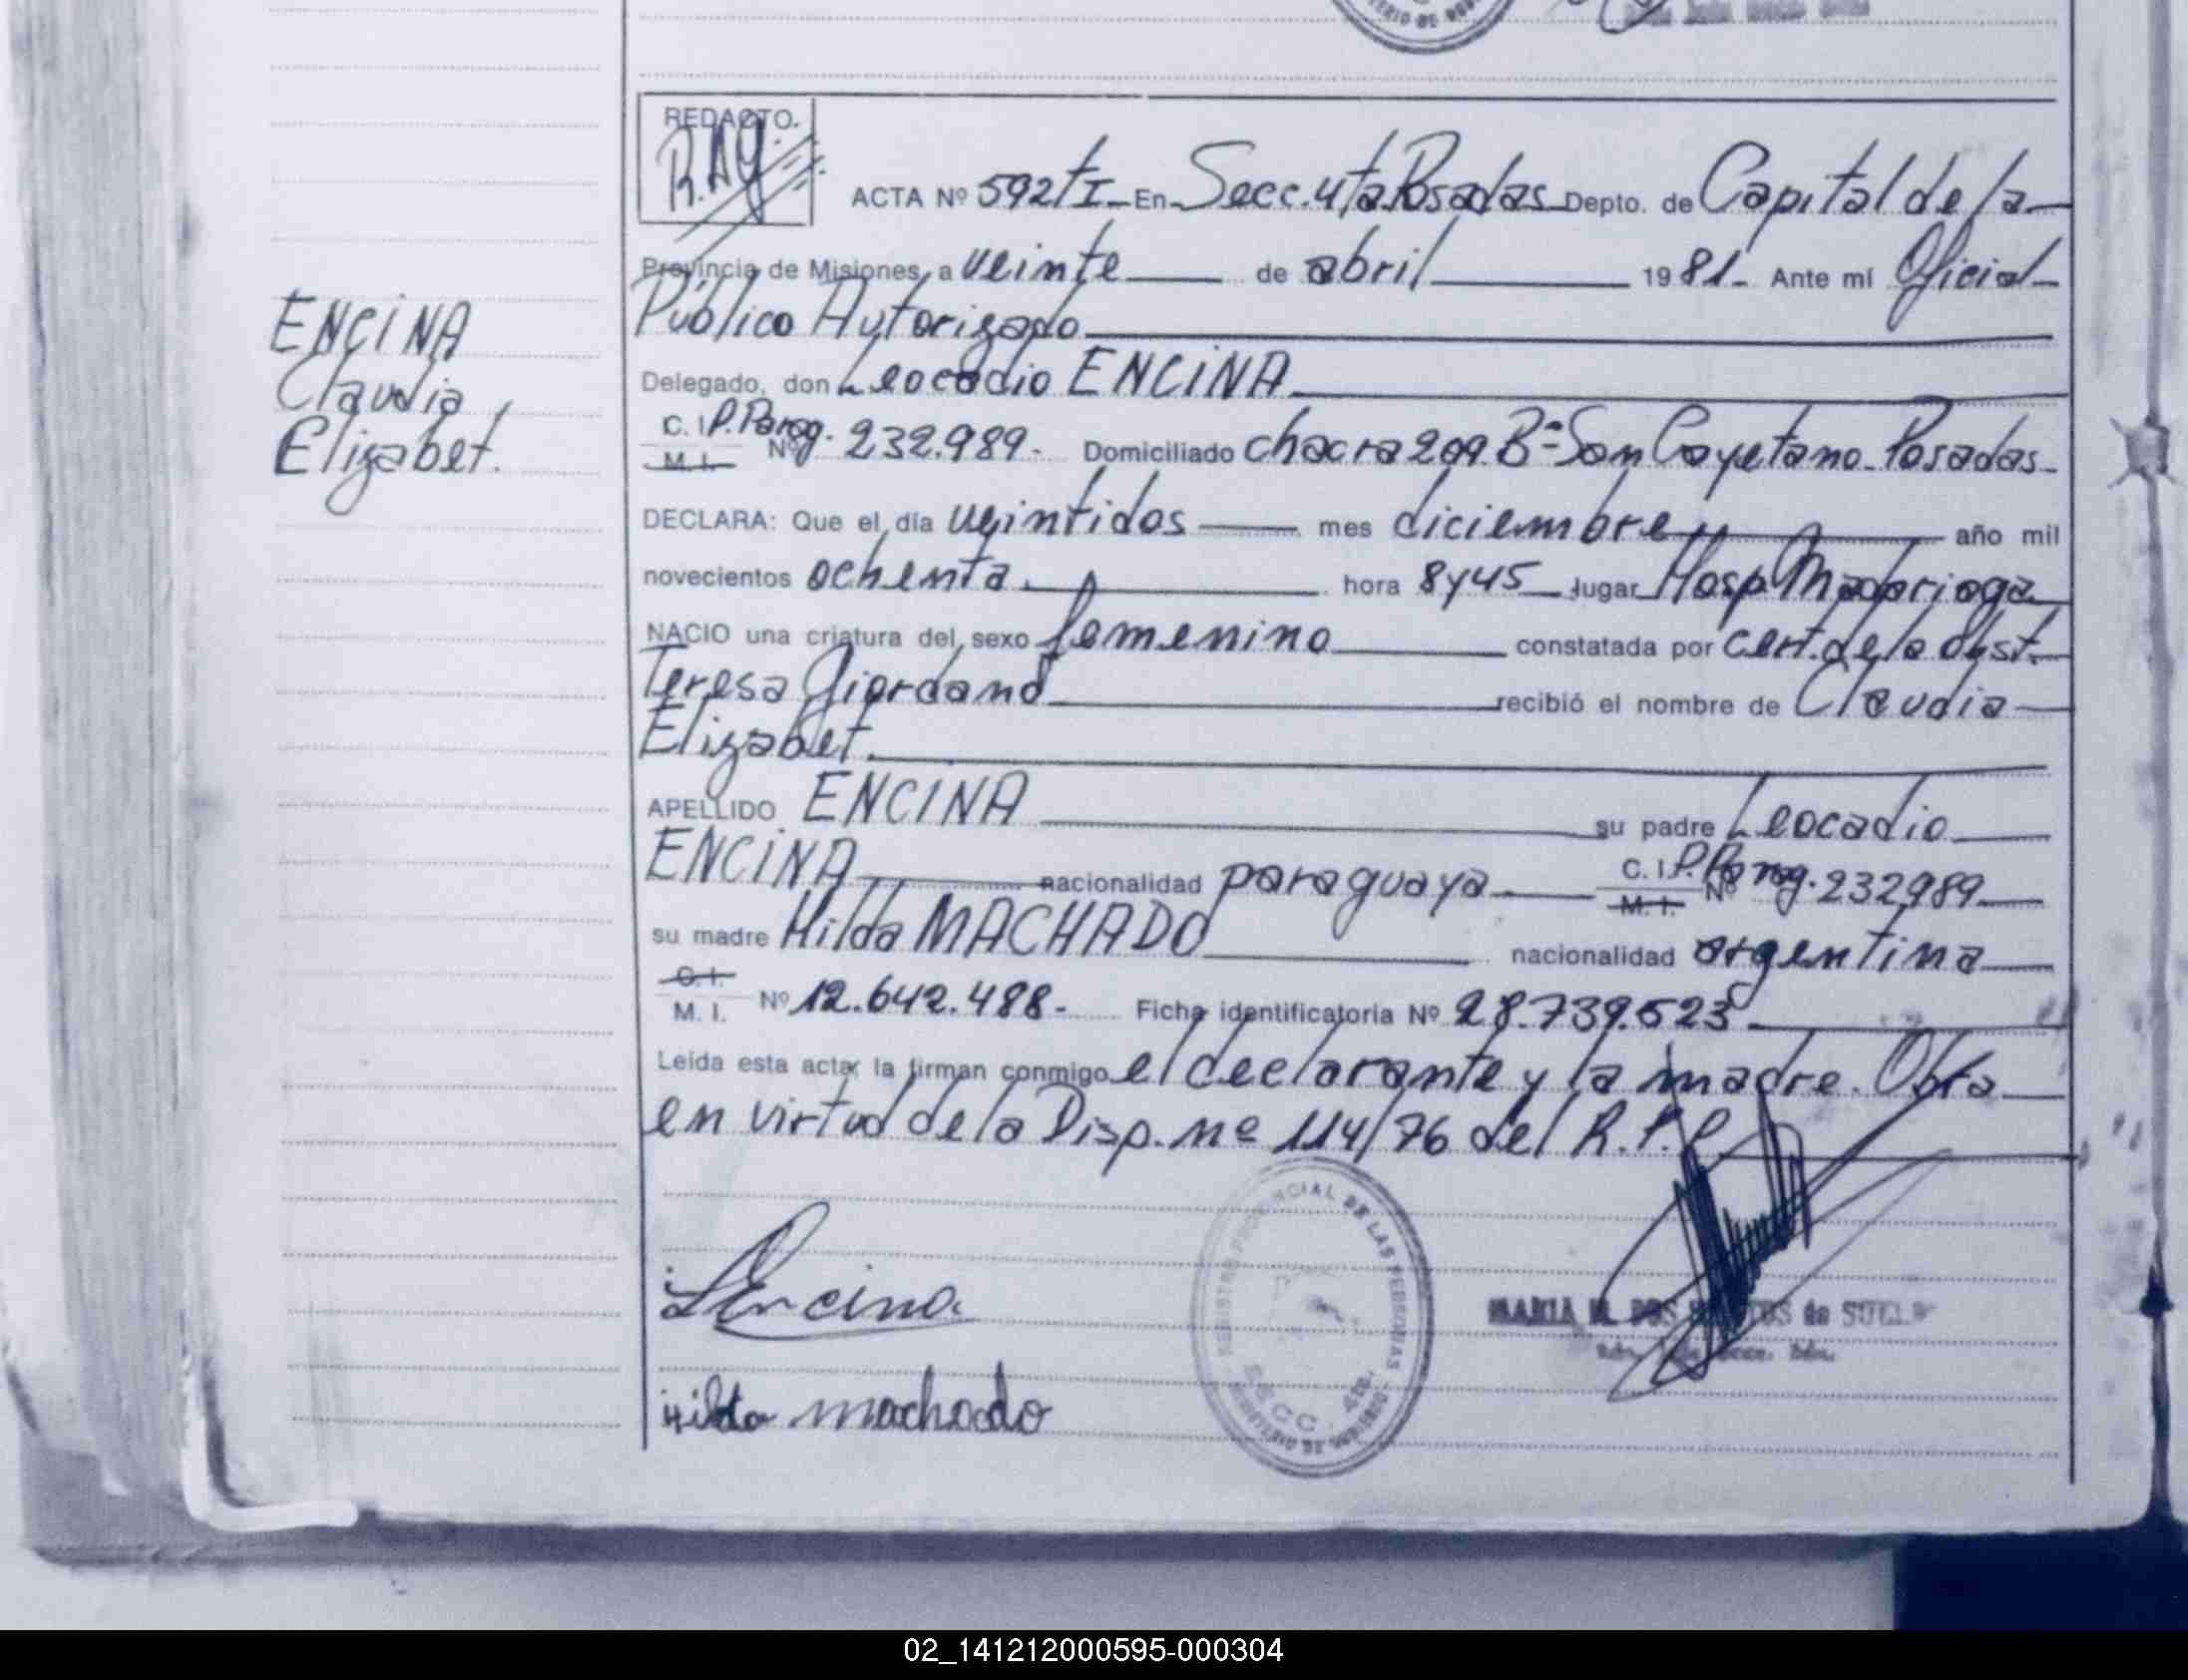 REDACTO.
ACTA Nº 592 tI - En Secc. 4ta Posadas Depto. de Capital de la
Provincia de Misiones, a veinte de abril 1981 - Ante mí Oficial
Público Autorizado
Delegado, don Leocadio ENCINA
C. I. P. Parag.
M. I. Nº 232.989. Domiciliado chacra 209. Bº San Cayetano - Posadas
DECLARA: Que el día veintidos mes diciembre año mil
novecientos ochenta. hora 8 y 45 lugar Hosp Madariaga
NACIO una criatura del sexo femenino constatada por cert. de la obst.
Teresa Giordano recibió el nombre de Claudia
Elizabet.
APELLIDO ENCINA su padre Leocadio
ENCINA nacionalidad paraguaya C. I. P. Parag.
M. I. Nº 232989
su madre Hilda MACHADO nacionalidad argentina
C. I.
M. I. Nº 12.642.488. Ficha identificatoria Nº 28.739.523
Leída esta acta, la firman conmigo el declarante y la madre. Obra
en virtud de la Disp. nº 114/76 del R.P.P.
ENCINA
Claudia
Elizabet.
LEncina.
Hilda machado
REGISTRO PROVINCIAL DE LAS PERSONAS
SECC. 4ta.
MINISTERIO DE GOBIERNO
MARIA M. DOS SANTOS de
02_141212000595-000304